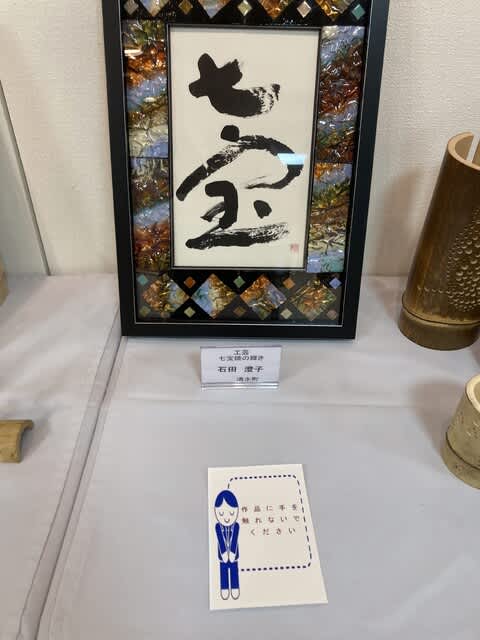 七
宝
工芸
七宝焼の輝き
石田 澄子
清水町
作品に手を
触れないで
ください